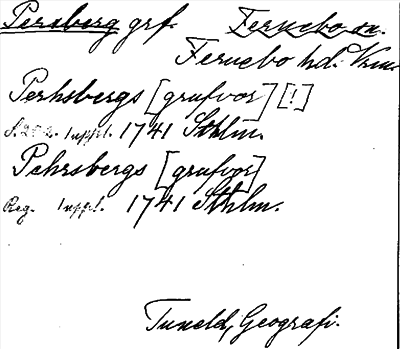 Persberg grf. Fernebo sn.
Fernebo hd. Vrm.
Perhsbergs [grufvor] [!]
S. 202. Uppl. 1741 Sthlm.
Pehrsbergs [grufvor]
Reg. Uppl. 1741 Sthlm.
Tuneld, Geografi.